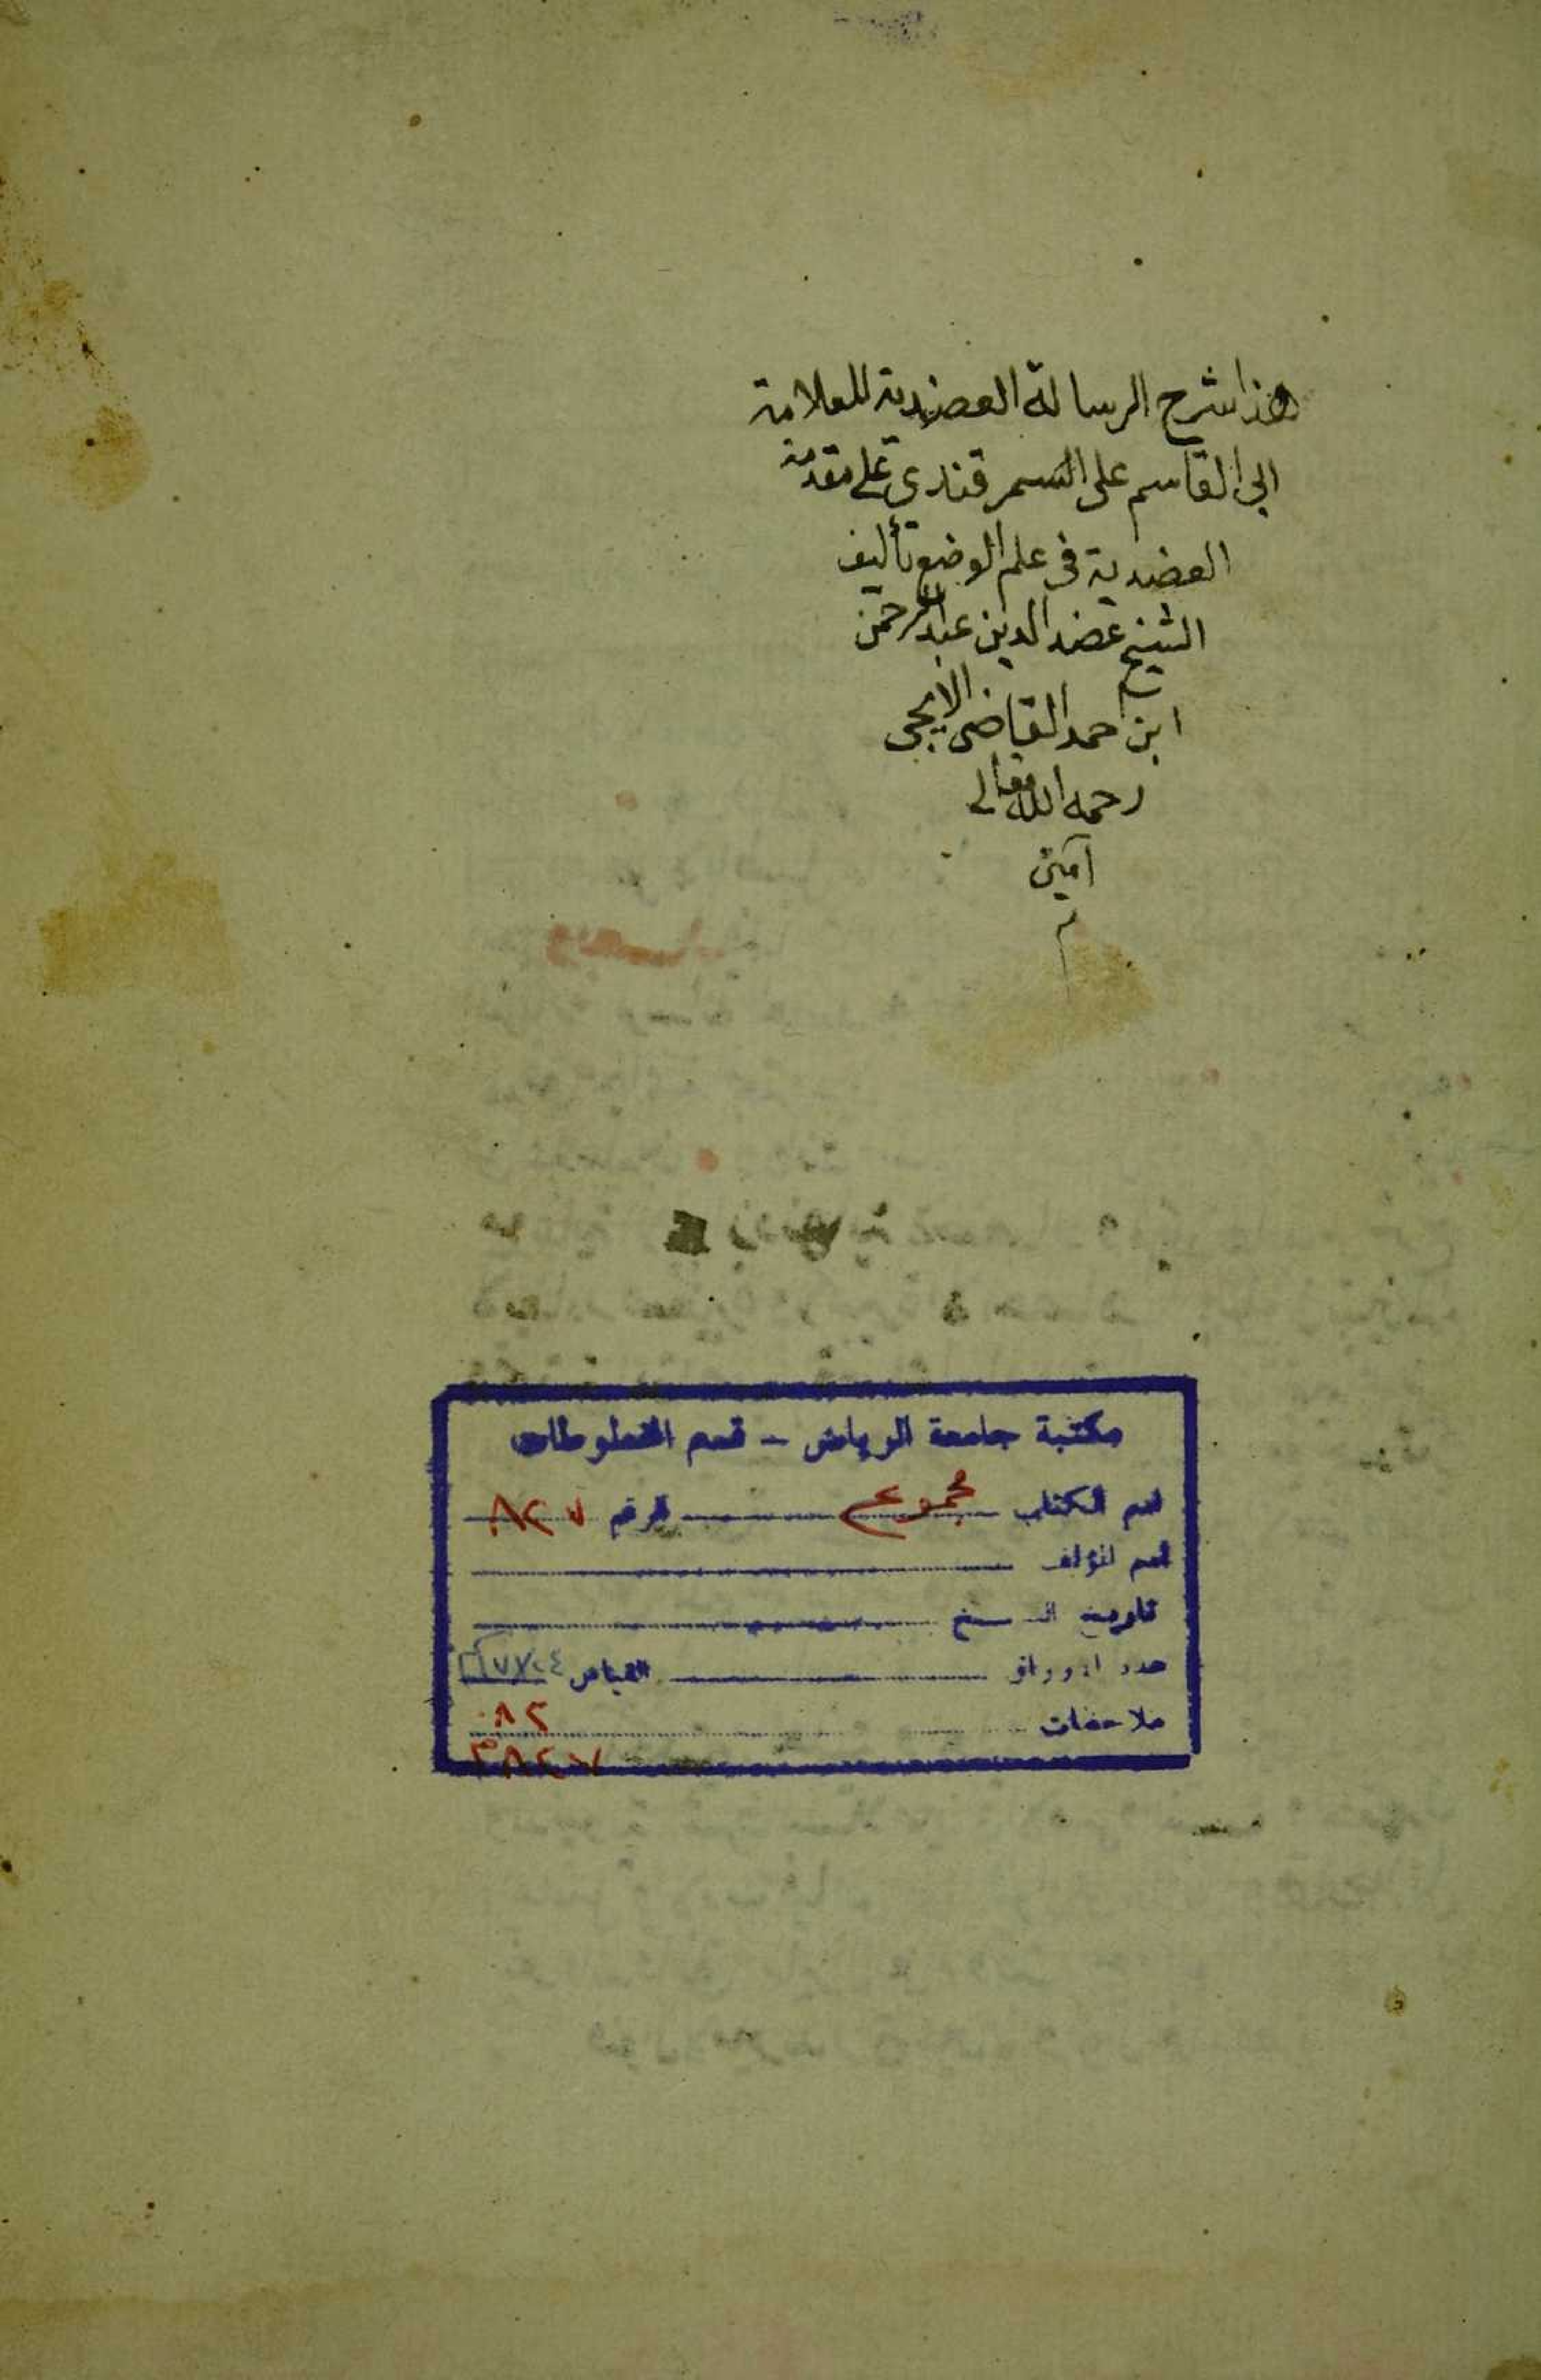 هذا شرح الرسالة العضدية للعلامة
ابي القاسم على السمرقندى على مقدمة
العضدية فى علم الوضع تأليف
الشيخ عضد الدين عبد الرحمن
ابن احمد القاضى الايجى
رحمه الله تعالى
آمين
م
مكتبة جامعة الرياض - قسم المخطوطات
اسم الكتاب مجموع الرقم ٨٢٧
اسم المؤلف
تاريخ النسخ
عدد الاوراق القياس
ملاحظات